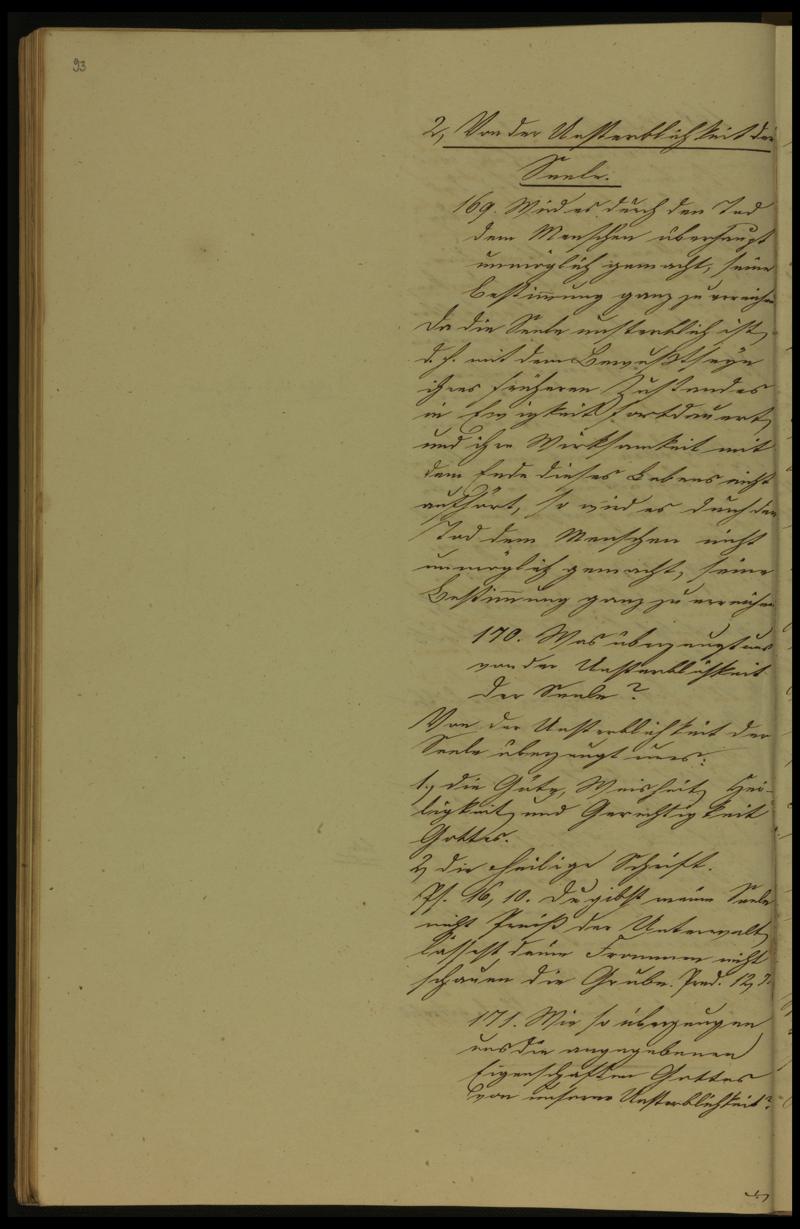 93
2, Von der Unsterblichkeit der
Seele.
169. Wird es durch den Tod
dem Menschen überhaupt
unmöglich gemacht, seine
Bestimmung ganz zu erreichen
Da die Seele unsterblich ist,
d. h. mit dem Bewußtseyn
ihres früheren Zustandes
in Ewigkeit fortdauert,
und ihre Wirksamkeit mit
dem Ende dieses Lebens nicht
aufhört, so wird es durch den
Tod dem Menschen nicht
unmöglich gemacht, seine
Bestimmung ganz zu erreichen
170. Was überzeugt uns
von der Unsterblichkeit
der Seele?
Von der Unsterblichkeit der
Seele überzeugt uns:
1, die Güte, Weisheit, Hei-
ligkeit, und Gerechtigkeit
Gottes.
2, die heilige Schrift.
Ps. 16, 10. Du gibst meine Seele
nicht Preiß der Unterwelt,
lässest deine Frommen nicht
schauen die Grube. Pred. 12, 7.
171. Wie so überzeugen
uns die angegebenen
Eigenschaften Gottes
von unserer Unsterblichkeit?